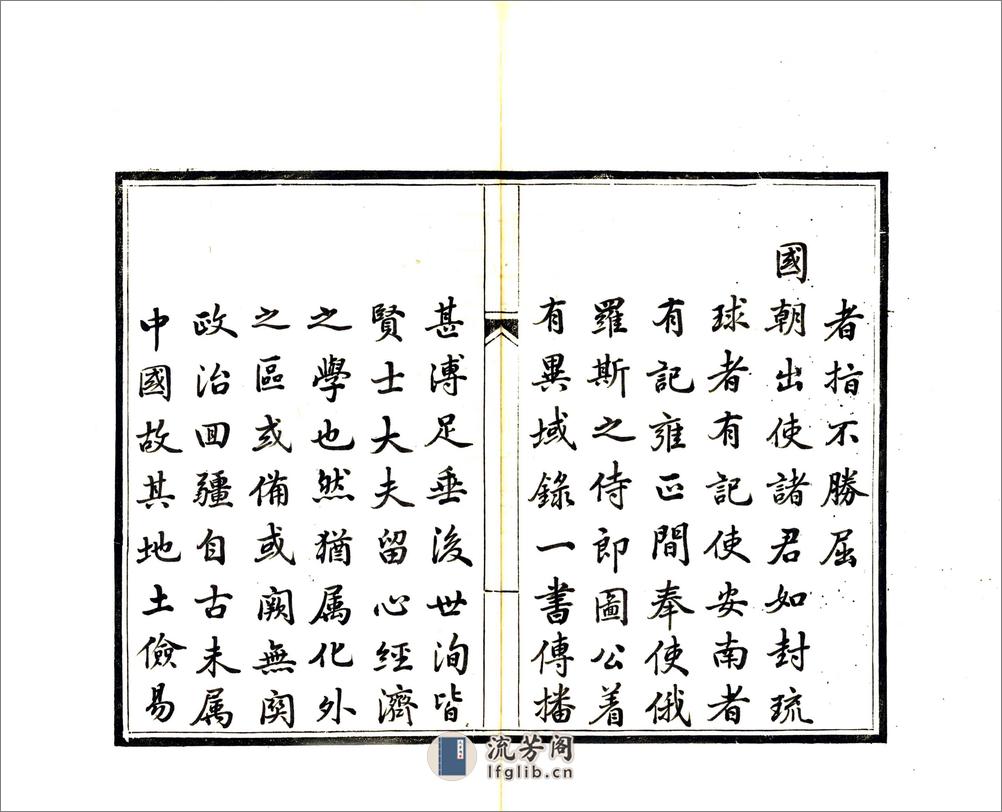 者指不勝屈
國朝出使諸君如封琉
球者有記使安南者
有記雍正間奉使俄
羅斯之侍郎圖公着
有異域錄一書傳播
甚溥足垂後世洵皆
賢士大夫留心經濟
之學也然猶属化外
之區或備或闕無関
政治回疆自古未属
中國故其地土儉易
流芳阁
lfglib.cn